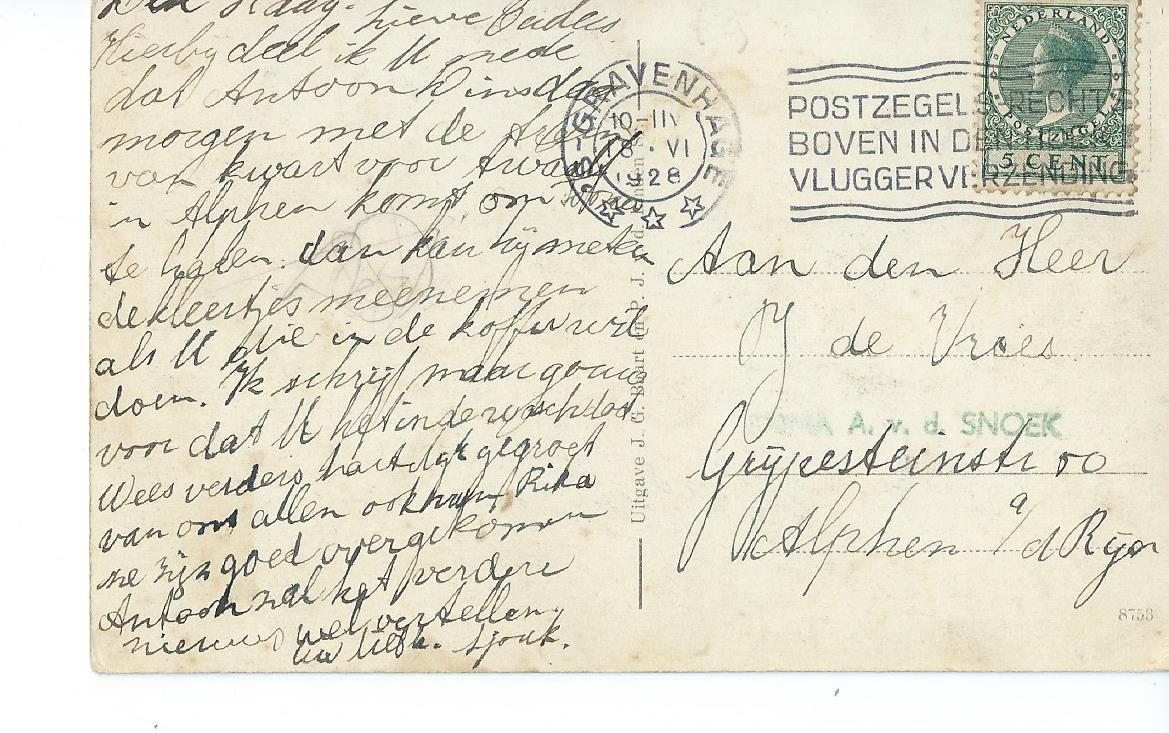 Den Haag. Lieve Ouders
Hierbij deel ik U mede
dat Antoon Dinsdag
morgen met de trein
van kwart voor twaalf
in Alphen komt om
te halen. dan kan hij meteen
de kleertjes meenemen
als U die in de koffer wil
doen. Ik schrijf maar gauw
voor dat U het in de wasch doet
Wees verders hartelijk gegroet
van ons allen ook van Rika
ze zijn goed overgekomen
Antoon zal het verdere
nieuws wel vertellen
uw liefh. Sjouk.
'S-GRAVENHAGE
10-11V
18·VI
1928
POSTZEGELS RECHTS
BOVEN IN DEN HOEK
VLUGGER VERZENDING
NEDERLAND
POSTZEGEL
5 CENT
Aan den Heer
J de Vries
A. v. d. SNOEK
Grijpesteinstr 00
Alphen a/d Rijn
Uitgave J. G. Blaart en P. J. v. d.
8753